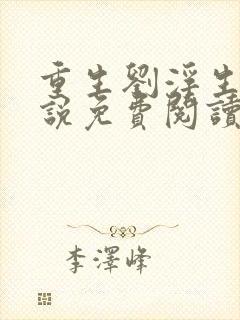 重生劉淫生
說免費閱讀
李澤峰